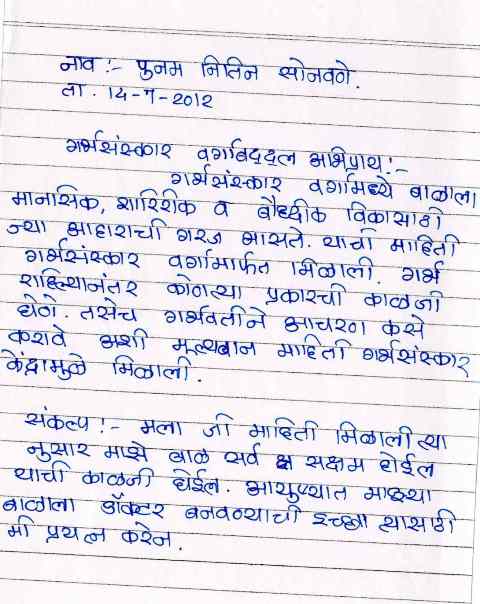 नाव :- पुनम नितिन सोनवणे.
ता. 14-7-2012
गर्भसंस्कार वर्गाबद्दल अभिप्राय :-
गर्भसंस्कार वर्गामध्ये बाळाला
मानसिक, शारिरीक व बौध्दीक विकासाठी
ज्या आहाराची गरज भासते. याची माहिती
गर्भसंस्कार वर्गामार्फत मिळाली. गर्भ
राहिल्यानंतर कोणत्या प्रकारची काळजी
घेणे. तसेच गर्भवतीने आचरण कसे
करावे अशी मूल्यवान माहिती गर्भसंस्कार
केंद्रामुळे मिळाली.
संकल्प :- मला जी माहिती मिळाली त्या
नुसार माझे बाळ सर्व सक्षम होईल
याची काळजी घेईल. आयुष्यात माझ्या
बाळाला डॉक्टर बनवण्याची इच्छा त्यासाठी
मी प्रयत्न करेन.